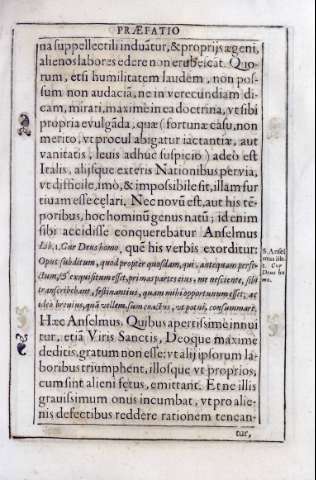 PRÆFATIO
na suppellectili induãtur, & proprijs ægeni,
alienos labores edere non erubescāt. Quo-
rum, etsi humilitatem laudem, non pos-
sum non audaciā, ne in verecundiam di-
cam, mirati, maxime in ea doctrina, vt sibi
propria evulgāda, quæ (fortunæ casu, non
merito, vt procul abigatur iactantiæ, aut
vanitatis, leuis adhuc suspicio) adeò est
Italis, alijsque exteris Nationibus pervia,
vt difficile, imò, & impossibile sit, illam fur
tiuam esse çelari. Nec novũ est, aut his tē-
poribus, hoc hominũ genus natũ; id enim
sibi accidisse conquerebatur Anselmus
lib. 1. Cur Deus homo, quē his verbis exorditur:
Opus subditum, quod propter quosdam, qui, antequam perfe-
ctum, & exquisitum esset, primas partes eius, me nesciente, sibi
transcribebant, festinantius, quam mihi opportunum esset, ac
ideo breuius, quā vellem, sum coactus, vt potui, consummare.
Hæc Anselmus. Quibus apertissimè innui
tur, etiā Viris Sanctis, Deoque maximè
deditis, gratum non esse: vt alij ipsorum la-
boribus triumphent, illosque vt proprios,
cum sint alieni fętus, emittant. Et ne illis
grauissimum onus incumbat, vt pro alie-
nis defectibus reddere rationem tenean-
tur,
S. Ansel
mus lib.
1. Cur
Deus ho
mo.